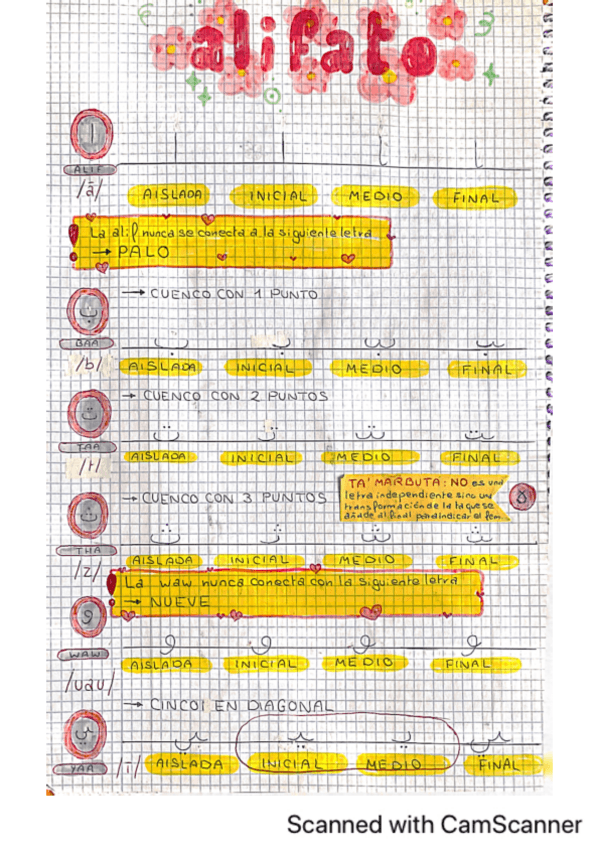 alifato
ا
ALIF
/ā/
AISLADA INICIAL MEDIO FINAL
La alif nunca se conecta a la siguiente letra
→ PALO
→ CUENCO CON 1 PUNTO
ب
BAA
/b/
AISLADA INICIAL MEDIO FINAL
→ CUENCO CON 2 PUNTOS
ت
TAA
/t/
AISLADA INICIAL MEDIO FINAL
→ CUENCO CON 3 PUNTOS
TA' MARBUTA: NO es una
letra independiente sino un
transformación de la ta que se
añade al final para indicar el fem.
ة
ث
THA
/z/
AISLADA INICIAL MEDIO FINAL
La waw nunca conecta con la siguiente letra
→ NUEVE
و
WAW
/uau/
و و و و
AISLADA INICIAL MEDIO FINAL
→ CINCO EN DIAGONAL
ي
YAA
/ī/
AISLADA INICIAL MEDIO FINAL
Scanned with CamScanner